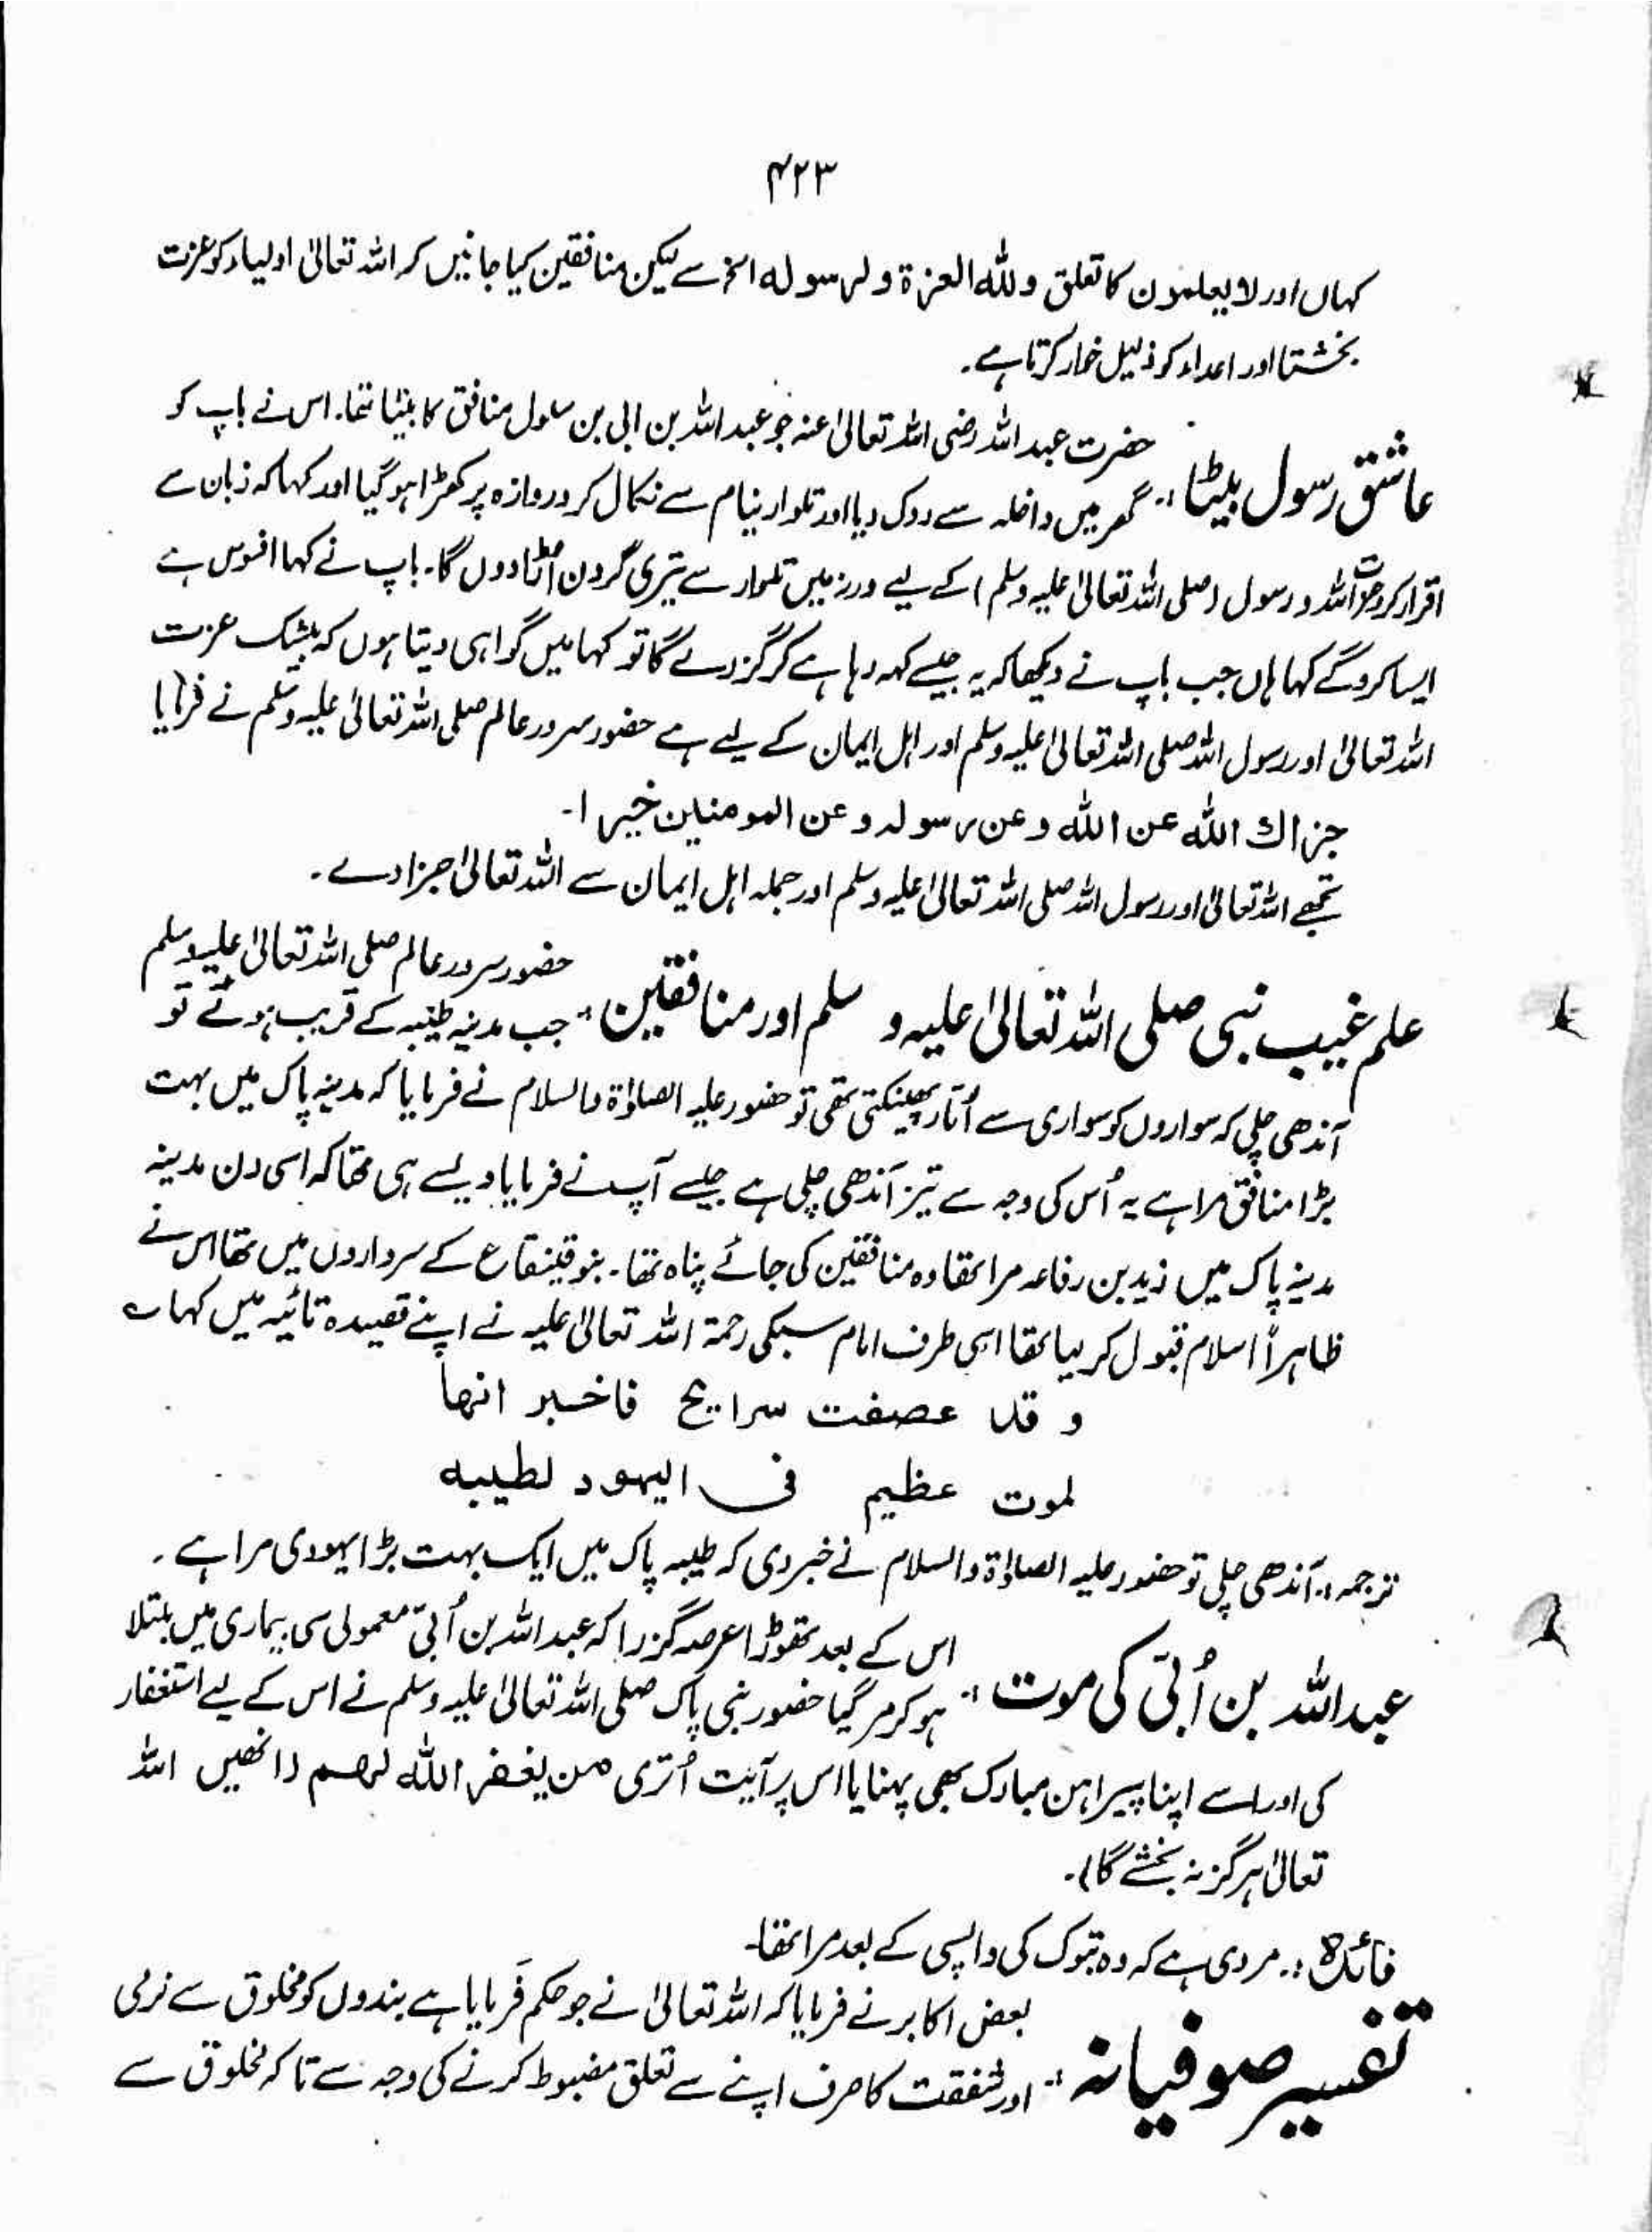 ۴۲۳
کہاں اور لا یعلمون کا تعلق وللہ العزۃ ولرسولہ الخ سے لیکن منافقین کیا جانیں کہ اللہ تعالیٰ اولیاء کو عزت
بخشتا اور اعداء کو ذلیل خوار کرتا ہے۔
عاشق رسول بیٹا :۔ حضرت عبداللہ رضی اللہ تعالیٰ عنہ جو عبداللہ بن ابی بن سلول منافق کا بیٹا تھا۔ اس نے باپ کو
گھر میں داخلہ سے روک دیا اور تلوار نیام سے نکال کر دروازہ پر کھڑا ہو گیا اور کہا کہ زبان سے
اقرار کرو عزت اللہ و رسول (صلی اللہ تعالیٰ علیہ وسلم) کے لیے ورنہ میں تلوار سے تیری گردن اڑا دوں گا۔ باپ نے کہا افسوس ہے
ایسا کرو گے کہا ہاں جب باپ نے دیکھا کہ یہ جیسے کہہ رہا ہے کر گزرے گا تو کہا میں گواہی دیتا ہوں کہ بیشک عزت
اللہ تعالیٰ اور رسول اللہ صلی اللہ تعالیٰ علیہ وسلم اور اہل ایمان کے لیے ہے حضور سرور عالم صلی اللہ تعالیٰ علیہ وسلم نے فرمایا
جزاك اللہ عن اللہ وعن رسولہ وعن المومنین خیرا۔
تجھے اللہ تعالیٰ اور رسول اللہ صلی اللہ تعالیٰ علیہ وسلم اور جملہ اہل ایمان سے اللہ تعالیٰ جزا دے۔
علم غیب نبی صلی اللہ تعالیٰ علیہ و سلم اور منافقین :۔ حضور سرور عالم صلی اللہ تعالیٰ علیہ وسلم
جب مدینہ طیبہ کے قریب ہوئے تو
آندھی چلی کہ سواروں کو سواری سے اُتار پھینکتی تھی تو حضور علیہ الصلوٰۃ والسلام نے فرمایا کہ مدینہ پاک میں بہت
بڑا منافق مرا ہے یہ اُس کی وجہ سے تیز آندھی چلی ہے جیسے آپ نے فرمایا ویسے ہی تھا کہ اسی دن مدینہ
مدینہ پاک میں زید بن رفاعہ مرا تھا وہ منافقین کی جائے پناہ تھا۔ بنو قینقاع کے سرداروں میں تھا اس نے
ظاہراً اسلام قبول کر لیا تھا اسی طرف امام سبکی رحمۃ اللہ تعالیٰ علیہ نے اپنے قصیدہ تائیہ میں کہا ؎
و قد عصفت رایح فاخبر انھا
لموت عظیم فی الیہود لطیبہ
ترجمہ :۔ آندھی چلی تو حضور علیہ الصلوٰۃ والسلام نے خبر دی کہ طیبہ پاک میں ایک بہت بڑا یہودی مرا ہے۔
عبداللہ بن اُبَیّ کی موت :۔ اس کے بعد تھوڑا عرصہ گزرا کہ عبداللہ بن اُبَیّ معمولی سی بیماری میں مبتلا
ہو کر مر گیا حضور نبی پاک صلی اللہ تعالیٰ علیہ وسلم نے اس کے لیے استغفار
کی اور اسے اپنا پیراہن مبارک بھی پہنایا اس پر آیت اُتری من یغفر اللہ لہم (انھیں اللہ
تعالیٰ ہرگز نہ بخشے گا)۔
فائدہ :۔ مروی ہے کہ وہ تبوک کی واپسی کے بعد مرا تھا۔
تفسیر صوفیانہ :۔ بعض اکابر نے فرمایا کہ اللہ تعالیٰ نے جو حکم فرمایا ہے بندوں کو مخلوق سے نرمی
اور شفقت کا صرف اپنے سے تعلق مضبوط کرنے کی وجہ سے تاکہ مخلوق سے